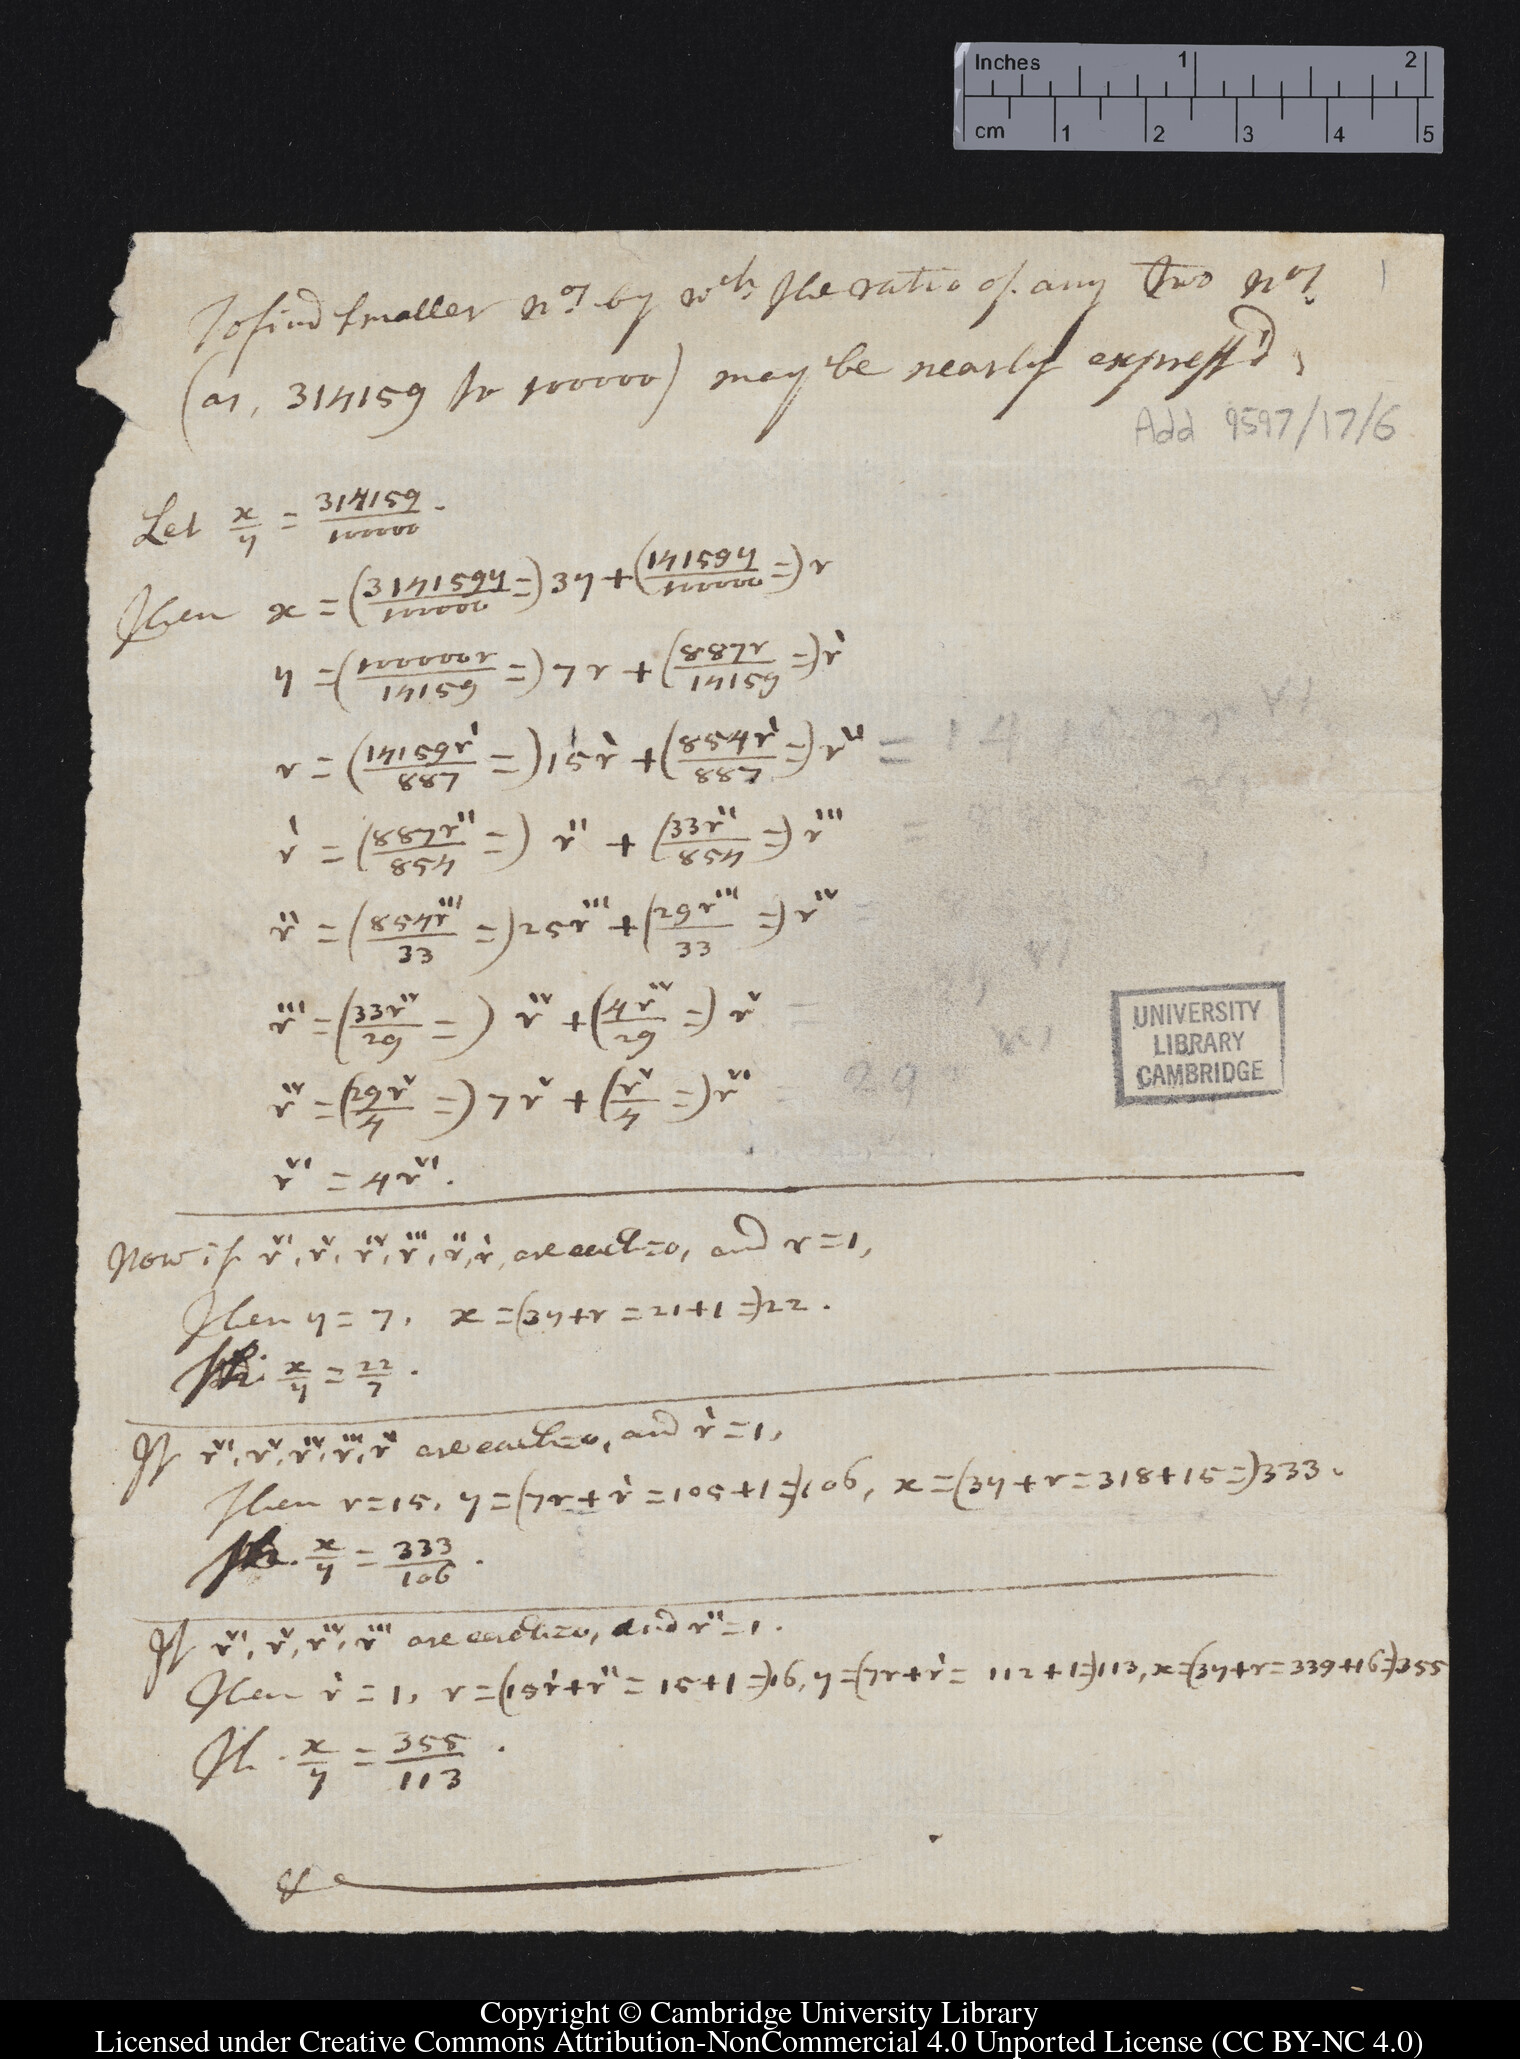 Inches 1 2
cm 1 2 3 4 5
1
To find smaller nos. by wch. the ratio of any two nos.
(as, 314159 to 100000) may be nearly express'd,
Add 9597/17/6
Let x/y = 314159/100000.
Then x = (314159y/100000 =) 3y + (14159y/100000 =) r
y = (100000r/14159 =) 7r + (887r/14159 =) r̍
r = (14159r̍/887 =) 15r̍ + (854r̍/887 =) rⁱⁱ =
r̍ = (887rⁱⁱ/854 =) rⁱⁱ + (33rⁱⁱ/854 =) rⁱⁱⁱ =
rⁱⁱ = (854rⁱⁱⁱ/33 =) 25rⁱⁱⁱ + (29rⁱⁱⁱ/33 =) rⁱᵛ
rⁱⁱⁱ = (33rⁱᵛ/29 =) rⁱᵛ + (4rⁱᵛ/29 =) rᵛ
rⁱᵛ = (29rᵛ/4 =) 7rᵛ + (rᵛ/4 =) rᵛⁱ
rᵛⁱ = 4rᵛⁱ.
UNIVERSITY
LIBRARY
CAMBRIDGE
Now if rᵛⁱ, rᵛ, rⁱᵛ, rⁱⁱⁱ, rⁱⁱ, r̍, are each =0, and r=1,
Then y = 7, x = (3y+r = 21+1 =) 22.
Th. x/y = 22/7.
If rᵛⁱ, rᵛ, rⁱᵛ, rⁱⁱⁱ, rⁱⁱ are each=0, and r̍=1,
Then r=15, y=(7r+r̍=105+1=)106, x=(3y+r=318+15=)333.
Th. x/y = 333/106.
If rᵛⁱ, rᵛ, rⁱᵛ, rⁱⁱⁱ are each=0, and rⁱⁱ=1.
Then r̍ = 1, r=(15r̍+rⁱⁱ = 15+1=)16, y=(7r+r̍ = 112+1=)113, x=(3y+r=339+16=)355
Th. x/y = 355/113.
&c
Copyright © Cambridge University Library
Licensed under Creative Commons Attribution-NonCommercial 4.0 Unported License (CC BY-NC 4.0)